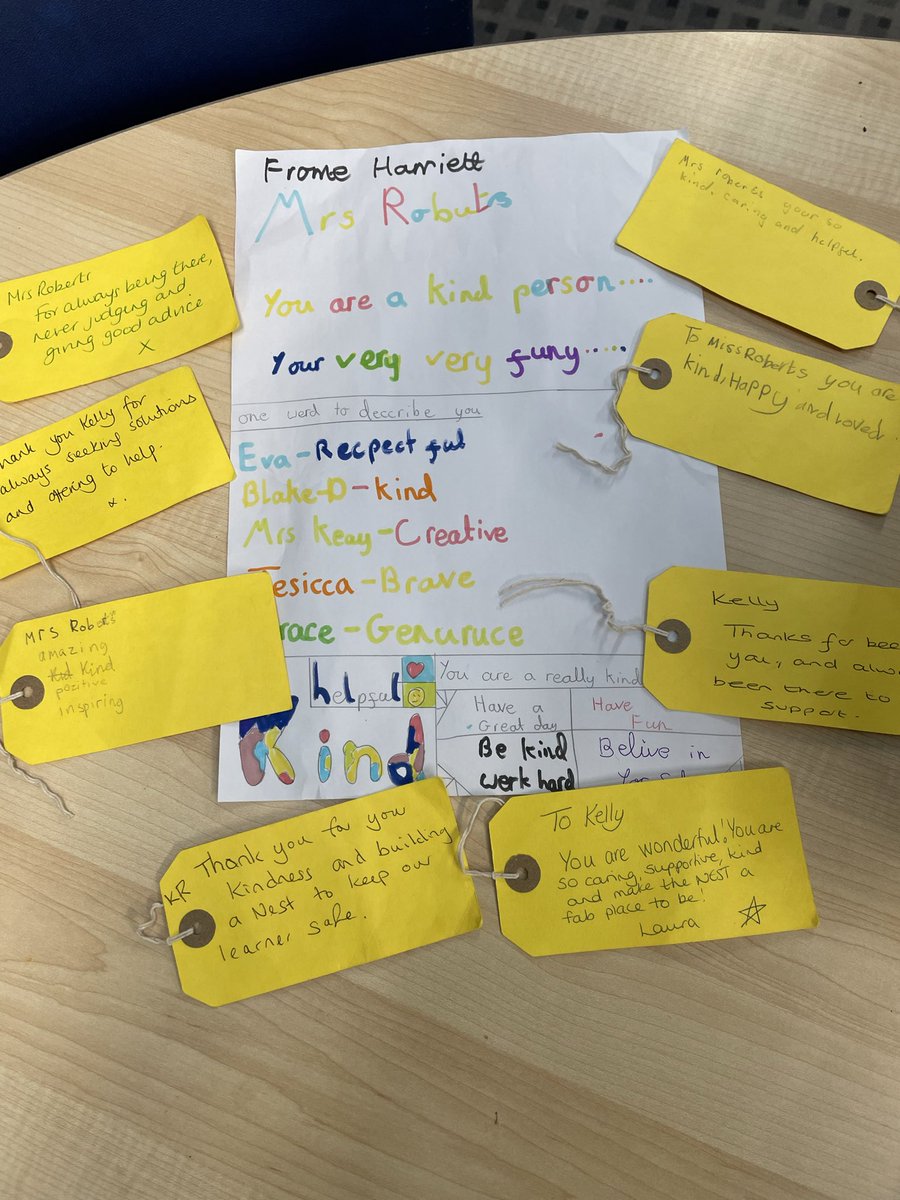 Frome Harriett
Mrs Robuts
You are a kind person....
Your very very funy.....
one werd to deccribe you
Eva-Recpectful
Blake-D-kind
Mrs Keay-Creative
Jesicca-Brave
race-Genuruce
helpful
Kind
You are a really kind
Have a
Great day
Have
Fun
Be kind
werk hard
Belive in
Mrs Roberts
For always being there,
never judging and
giving good advice
X
hank you Kelly for
always seeking solutions
and offering to help.
x.
Mrs Roberts
amazing
Kind
pozitive
inspiring
Mrs roberts your so
kind. caring and helpfel.
To Miss Roberts you are
kind, Happy and loved
Kelly
Thanks for bee
you, and alwa
been there to
support.
KR
Thank you for you
kindness and building
a Nest to keep our
learner safe.
To Kelly
You are wonderful! You are
so caring, supportive, kind
and make the NEST a
fab place to be!
Laura